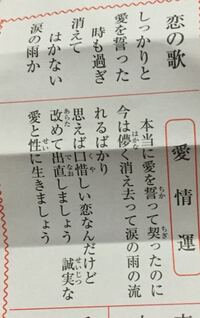 恋の歌
しっかりと
愛を誓った
時も過ぎ
消えて
はかない
涙の雨か
愛情運
本当に愛を誓って契ったのに
今は儚く消え去って涙の雨の流
れるばかり
思えば口惜しい恋なんだけど
改めて出直しましょう 誠実な
愛と性に生きましょう